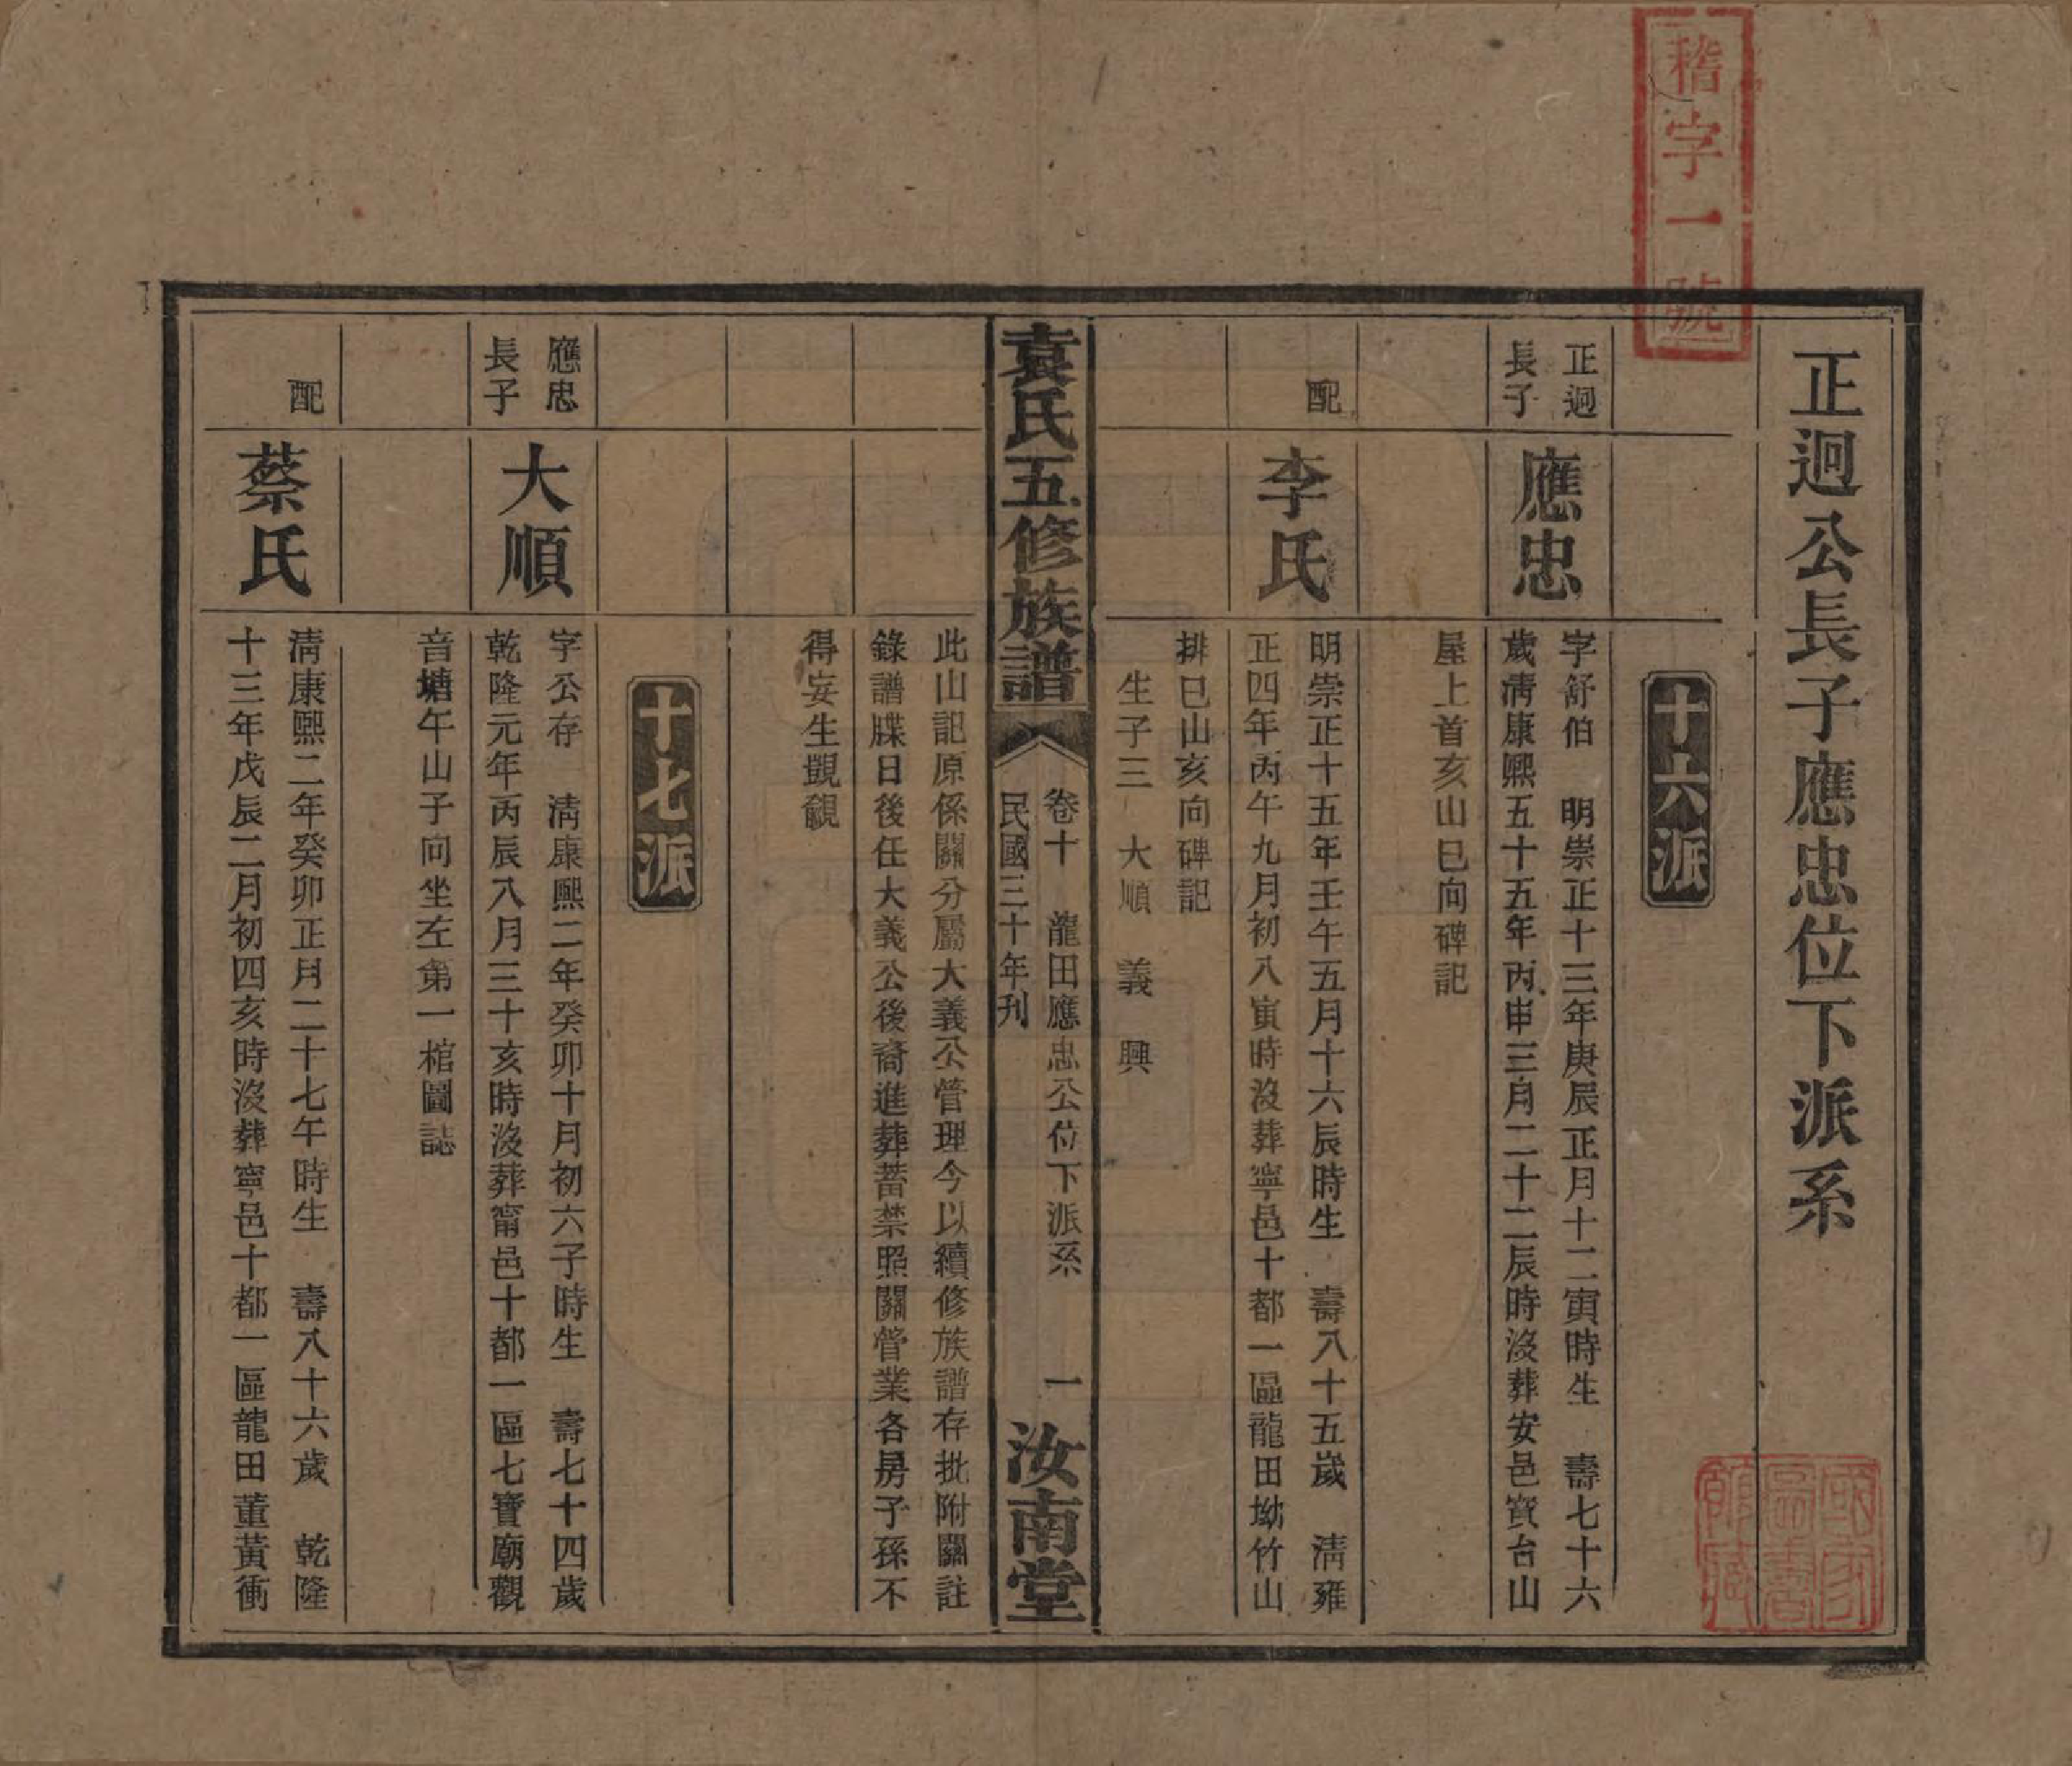 稽字一號
正迥公長子應忠位下派系
十六派
正迥
長子
應忠
字舒伯　明崇正十三年庚辰正月十二寅時生　壽七十六
歲清康熙五十五年丙申三月二十二辰時沒葬安邑寶台山
屋上首亥山巳向碑記
配
李氏
明崇正十五年壬午五月十六辰時生　壽八十五歲　清雍
正四年丙午九月初八寅時沒葬寧邑十都一區龍田坳竹山
排巳山亥向碑記
生子三　大順　義　興
袁氏五修族譜
卷十　龍田應忠公位下派系　一
民國三十年刊
汝南堂
此山記原係關分屬大義公管理今以續修族譜存批附關註
錄譜牒日後任大義公後裔進葬蓄禁照關管業各房子孫不
得妄生覬覦
十七派
應忠
長子
大順
字公存　清康熙二年癸卯十月初六子時生　壽七十四歲
乾隆元年丙辰八月三十亥時沒葬甯邑十都一區七寶廟觀
音塘午山子向坐左第一棺圖誌
配
蔡氏
清康熙二年癸卯正月二十七午時生　壽八十六歲　乾隆
十三年戊辰二月初四亥時沒葬寧邑十都一區龍田董黃衝